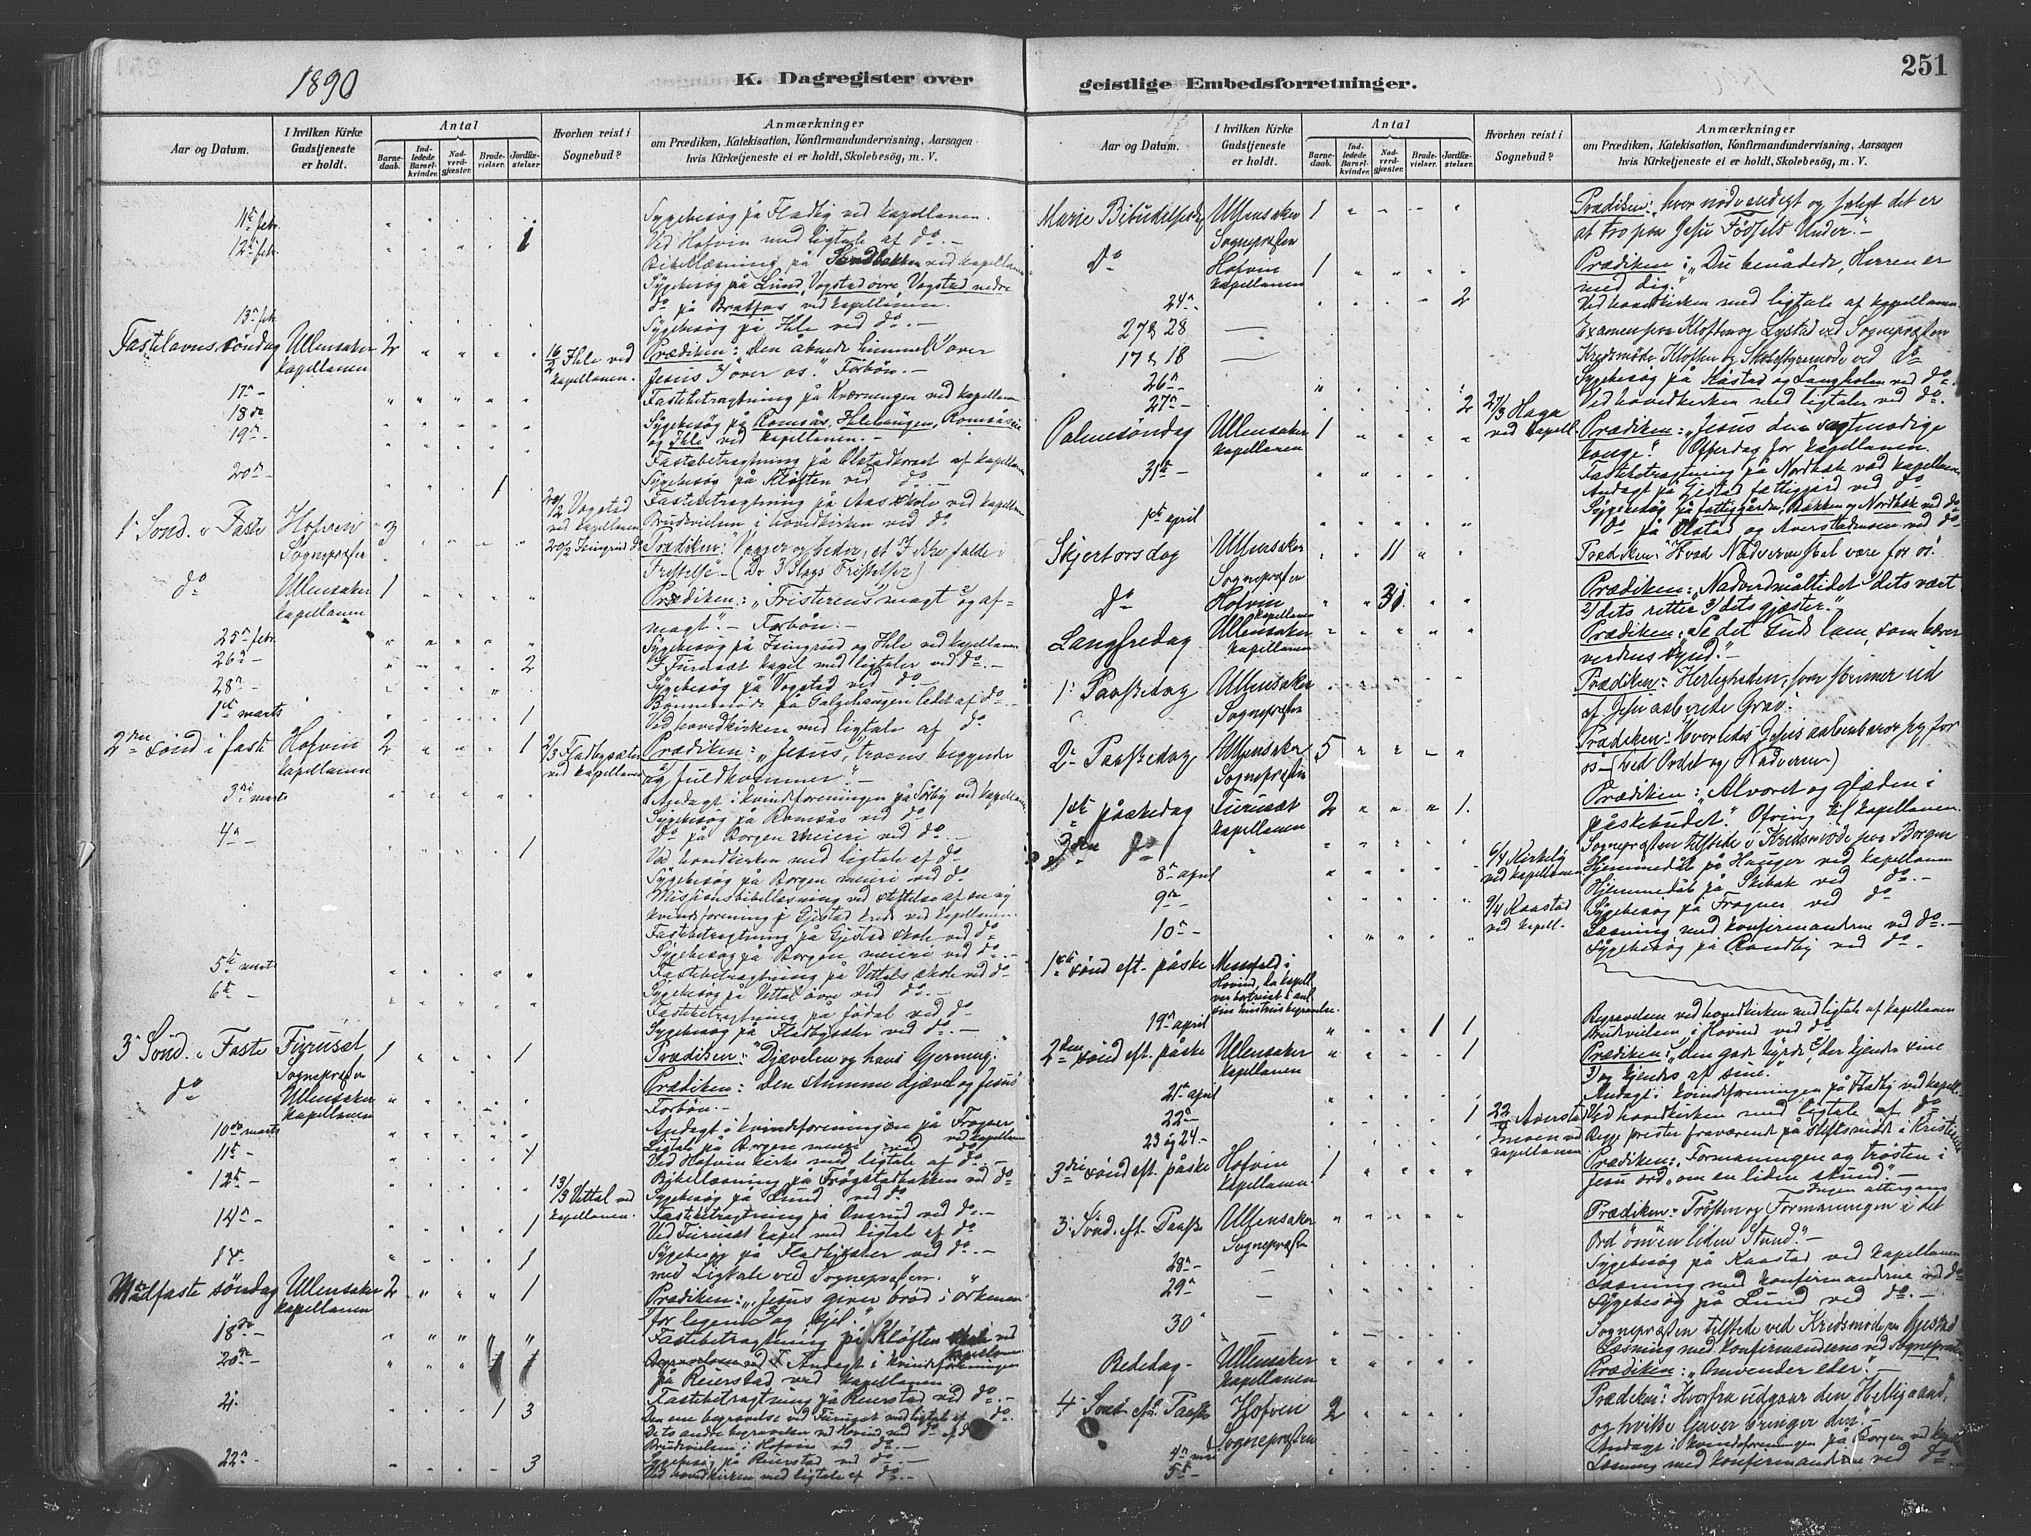 251
1890
K. Dagregister over
geistlige Embedsforretninger.
Aar og Datum.
I hvilken Kirke Gudstjeneste er holdt.
Antal
Barnedaab.
Indledede Barselkvinder.
Nadverdgjæster.
Brudevielser.
Jordfæstelser.
Hvorhen reist i Sognebud?
Anmærkninger
om Prædiken, Katekisation, Konfirmandundervisning, Aarsagen
hvis Kirketjeneste ei er holdt, Skolebesög, m. V.
11te febr.
Sygebesög på Fladby ved kapellanen.
12te febr.
1
Ved Hofvin med ligtale af do. -
Bibellæsning på Sandbakken ved kapellanen
Sygebesög på Lund, Vogstad övre, Vogstad nedre
do på Bratfos ved kapellanen.
13n feb.
Sygebesög på Ihle ved do. -
Fastelavns söndag Ullensaker 2
kapellanen
16/2 Ihle ved kapellanen.
Prædiken: "Den åbnede himmel 1/ over
Jesus 2/ over os." Forbön. -
17n -
Fastebetragtning på Kværningen ved kapellanen
18de
Sygebesög på Romsås, Ihlehaugen,
19n -
og Ihle ved kapellanen. -
Fastebetragtning på Ölstadkroet af kapellanen
20n -
Sygebesög på Klöften ved do -
1
20/2 Vogstad ved kapellanen
Fastebetragtning på Aas skole ved kapellanen
Brudvielsen i hovedkirken ved do
1. Sönd. i Faste Hofvin 3
Sognepræsten
Prædiken: "Vaager og beder, at I ikke falde i
Fristelse - (De 3 Slags Fristelser)
do Ullensaker 1
kapellanen
Prædiken: "Fristerens magt og afmagt". - Forbön. -
25n febr.
Sygebesög på Isingrud og Ihle ved kapellanen
26n -
2
I Furuset kapel med ligtaler ved do. -
28n -
Sygebesög på Vogstad ved do -
Bönnemöde på Galgehaugen ledet af do -
1ste marts
1
Ved hovedkirken med ligtale af do
2den sönd i faste Hofvin 2 1
kapellanen
2/3 Fladbysæter ved kapellanen
Prædiken: "Jesus, troens begynder
og fuldkommer". -
3die marts
Andagt i kvindeforeningen på Sörby ved kapellanen
Sygebesög på Romsås ved do -
4n -
do på Borgen meieri ved do -
1
Ved hovedkirken med ligtale af do -
Sygebesög på Borgen meieri ved do
Missionsbibellæsning ved stiftelse af en ny
kvindeforening i Gjestad kreds ved kapellanen.
Fastebetragtning på Gjestad skole ved do -
Sygebesög på Borgen meieri ved do -
5te marts
Fastebetragtning på Vittals skole ved do
6te -
Sygebesög på Vittal övre ved do. -
Fastebetragtning på Födal ved do
Sygebesög på Fladbysæter ved do. -
3. Sönd. i Faste Furuset 1 1
Sognepræsten
Prædiken: "Djævelen og hans Gjerning."
do Ullensaker
kapellanen
Prædiken: Den stumme djævel og Jesus"
Forbön. -
10de marts
Andagt i kvindeforeningen på Frogner ved kapellanen
Ligtale på Borgen meieri ved do -
11te -
1
Ved Hofvin kirke med ligtale af do -
12te -
13/3 Vittal ved kapellanen.
Bibellæsning på Frogstadbakken ved do
Sygebesög på Lund ved do
14n -
1
Fastebetragtning på Onsrud ved do. -
Ved Furuset kapel med ligtale af do
Sygebesög på Fladbysæter ved do. -
14. 1
med Ligtale ved Sognepræsten.
Midfaste söndag Ullensaker 2 1
kapellanen
Prædiken: "Jesus giver bröd i örkenen
1/ for legeme 2/ og sjel."
18de -
Fastebetragtning på Klöften skole ved kapellanen
20de -
Andagt i kvindeforeningen
på Reierstad ved kapellanen
Fastebetragtning på Reierstad ved do -
21. 1 3
Den ene begravelse ved Furuset med ligtale af do.
De to andre begravelser ved Hovind ved do
Brudvielsen i Hofvin ved do. -
22n -
3
Sygebesög på Reierstad ved do. -
Ved hovedkirken med ligtale af do. -
Aar og Datum.
I hvilken Kirke Gudstjeneste er holdt.
Antal
Barnedaab.
Indledede Barselkvinder.
Nadverdgjæster.
Brudevielser.
Jordfæstelser.
Hvorhen reist i Sognebud?
Anmærkninger
om Prædiken, Katekisation, Konfirmandundervisning, Aarsagen
hvis Kirketjeneste ei er holdt, Skolebesög, m. V.
Marie Bebudelsesdag Ullensaker 1
Sognepræsten
Prædiken: "hvor nödvendigt og saligt det er
at tro paa Jesu Födsels Under". -
do Hofvin 1
kapellanen
Prædiken: "Du benådede, Herren er
med dig."
24n
2
Ved hovedkirken med ligtale af kapellanen
27 & 28
Examen paa Klöften og Lystad ved Sognepræsten
17 & 18
Kredsmöde Klöften og Skolestyremöde ved do
26n -
Sygebesög på Råstad og Langholen ved do.
27n -
2
27/3 Haga ved kapell.
Ved hovedkirken med ligtaler ved do.
Palmesöndag Ullensaker 1
kapellanen
Prædiken: "Jesus den sagtmodige
konge". Offerdag for kapellanen.
31te -
Fastebetragtning på Nordbak ved kapellanen
Andagt på Gjestad fattiggård ved do
1ste april
Sygebesög på fattiggården, Bakken og Nordbak ved do
do på Ölstad og Averstadmoen ved do
Skjertorsdag Ullensaker 11
Sognepræsten
Prædiken: "Hvad Nadveren skal være for os".
do Hofvin 31
kapellanen
Prædiken: "Nadverdmåltidet 1/ dets vært
2/ dets retter 3/ dets gjæster."
Langfredag Ullensaker
kapellanen
Prædiken: "Se det Guds lam, som bærer
verdens synd." -
1. Paaskedag Ullensaker
Sognepræsten
Prædiken: "Herligheden, som skinner ud
af Jesu aabnede Grav.
2. Paaskedag Ullensaker 5
Sognepræsten
Prædiken: "Hvorledes Jesus aabenbarer sig for
os - (ved Ordet og Nadveren)
1ste påskedag Furuset 2 1
kapellanen
Prædiken: "Alvoret og glæden i
påskebudet". Ofring til kapellanen.
2den do
Sognepræsten tilstede i Kredsmöde paa Borgen
8n april
6/4 Kirkeby ved kapellanen
Hjemmedåb på Hauger ved kapellanen
Hjemmedåb på Skibak ved do. -
9n -
9/4 Raastad ved kapell.
Sygebesög på Frogner ved do
10n -
Læsning med konfirmanderne ved do. -
Sygebesög på Randby ved do -
1ste sönd eft. påske Messefald i
Hovind, da kapell.
var bortreist
19n april
1 1
Begravelsen ved hovedkirken med ligtale af kapellanen
Brudvielsen i Hovind ved do
2den sönd eft. påske Ullensaker 1
kapellanen
Prædiken: "den gode hyrde 1/ der kjender sine
2/ og kjendes af sine."
21n april
Andagt i kvindeforeningen på Fladby ved kapell.
22n
1
22/4 Averstadmoen ved kapellanen
Ved hovedkirken med ligtale af do
23 og 24 -
Begge prester fraværende på stiftsmöde i Kristiania
3die sönd eft. påske Hofvin 1
kapellanen
Prædiken: "Formaningen og trösten i
Jesu ord "om en liden stund". -
Ingen altergang
3. Sönd. eft. Paaske Ullensaker
Sognepræsten
Prædiken: "Trösten og Formaningen i det
Ord om "en liden Stund." -
28n -
Sygebesög på Raastad ved kapellanen
29n
Læsning med konfirmanderne ved do
Sygebesög på Lund ved do. -
30
Sognepræsten tilstede ved Kredsmöde paa Gjestad
Læsning med konfirmanderne ved Sognepræsten
Bededag - Ullensaker
kapellanen
Prædiken: "Omvender eder". -
4. Sönd. eft. Paaske Hofvin 2
Sognepræsten
Prædiken: "Hvorfra udgaar den Helligaand,
og hvilke Gaver bringer den. -
4n mai
Andagt i kvindeforeningen på Borgen ved kapell.
5te
Læsning med konfirmanderne ved do. -